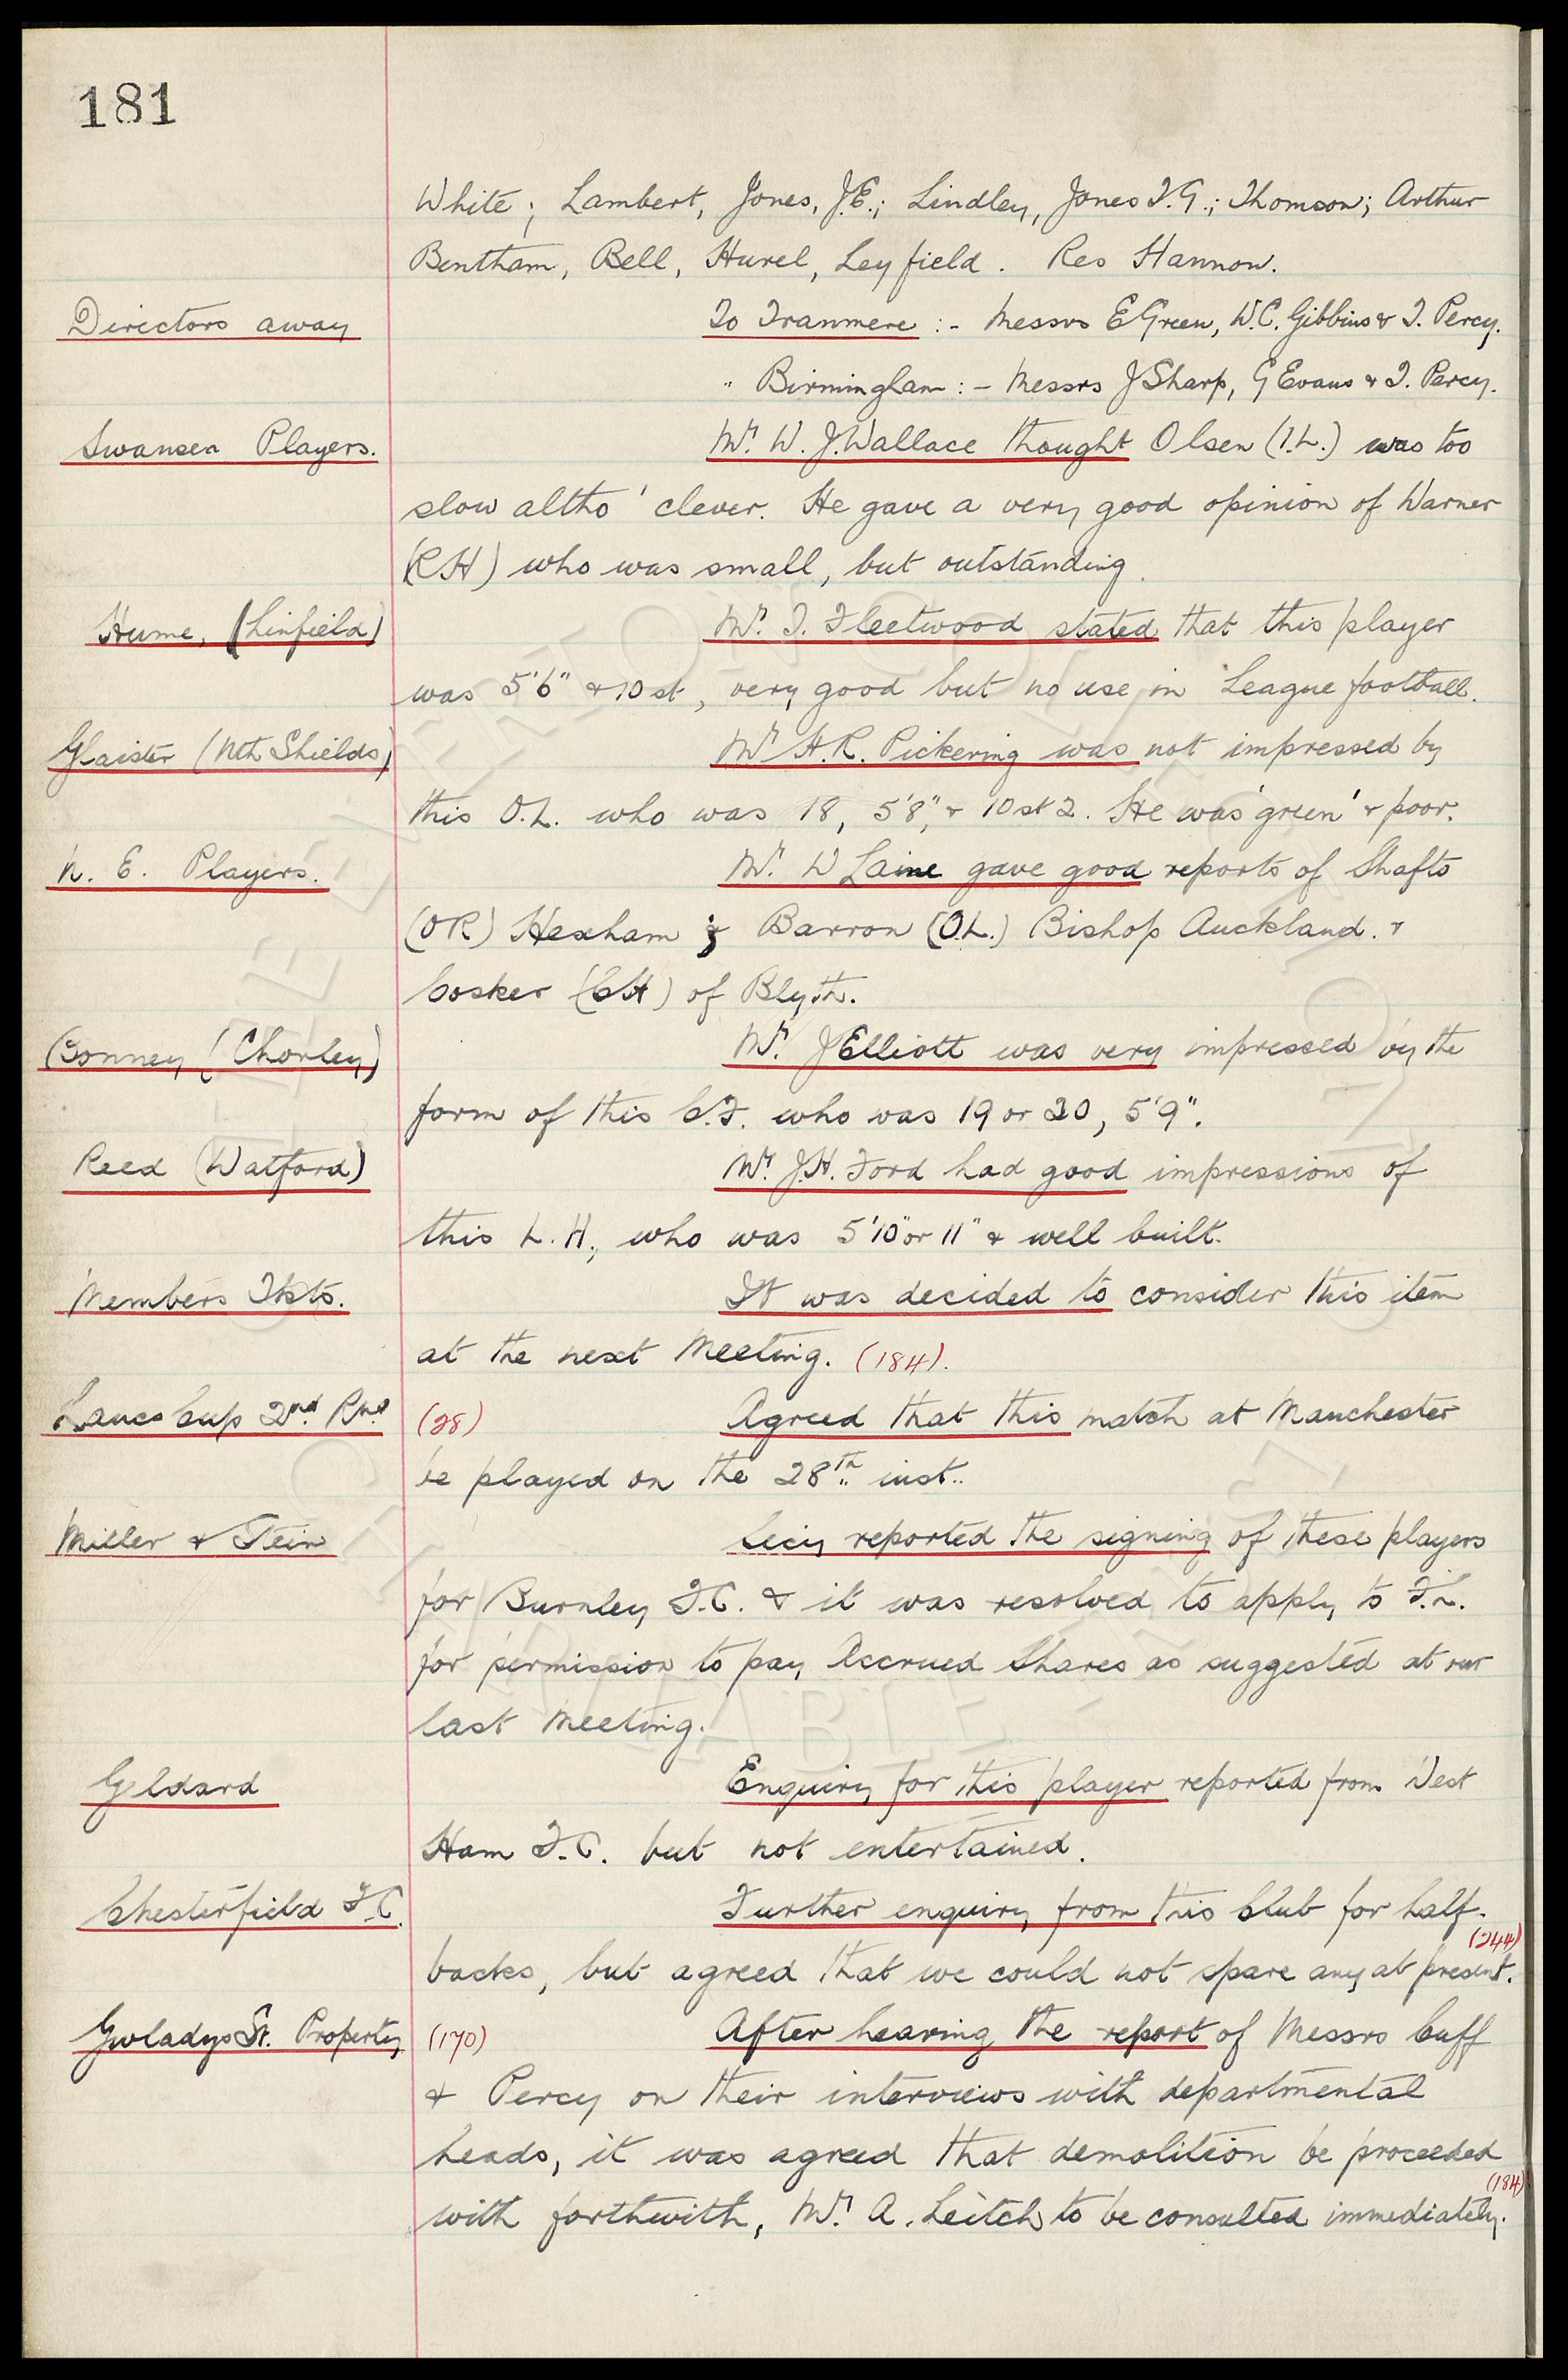 181
White; Lambert, Jones, J.E.; Lindley, Jones T.G.; Thomson; Arthur
Bentham, Bell, Hurel, Leyfield. Res Hannon.
Directors away To Tranmere :- Messrs E Green, W.C. Gibbins & T. Percy.
" Birmingham :- Messrs J Sharp, G Evans & T. Percy.
Swansea Players. Mr. W. J. Wallace thought Olsen (I.L.) was too
slow altho' clever. He gave a very good opinion of Warner
(RH) who was small, but outstanding.
Hume, (Linfield) Mr. T. Fleetwood stated that this player
was 5'6" & 10 st, very good but no use in League football.
Glaister (Nth Shields) Mr H.R. Pickering was not impressed by
this O.L. who was 18, 5'8", & 10 st 2. He was 'green' & poor.
N. E. Players. Mr. W Laine gave good reports of Shafto
(OR) Hexham & Barron (O.L.) Bishop Auckland. &
Cosker (CH) of Blyth.
Bonney (Chorley) Mr. J Elliott was very impressed by the
form of this C.F. who was 19 or 20, 5'9".
Reed (Watford) Mr. J.H. Ford had good impressions of
this L.H., who was 5'10" or 11" & well built.
Members Tkts. It was decided to consider this item
at the next Meeting. (184).
Lancs Cup 2nd. Rnd (28) Agreed that this match at Manchester
be played on the 28th. inst..
Miller & Stein Secy reported the signing of these players
for Burnley F.C. & it was resolved to apply to F.L.
for permission to pay Accrued Shares as suggested at our
last Meeting.
Geldard Enquiry for this player reported from West
Ham F.C. but not entertained.
Chesterfield F.C. Further enquiry from this Club for half-
backs, but agreed that we could not spare any at present. (244)
Gwladys St. Property (170) After hearing the report of Messrs Cuff
& Percy on their interviews with departmental
heads, it was agreed that demolition be proceeded
with forthwith, Mr. A. Leitch to be consulted immediately. (184)